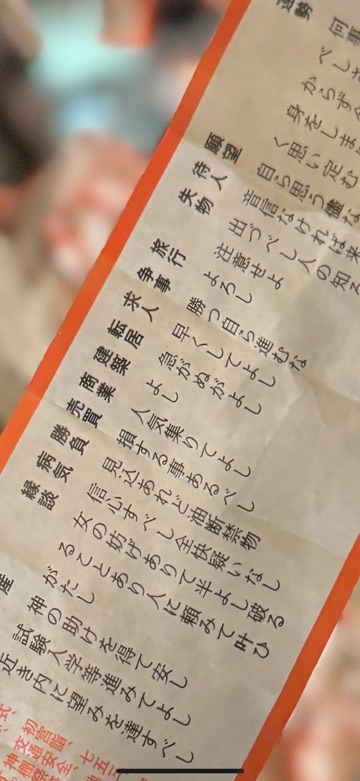 運勢 何事
べしま
からず今
身をしま
く思い定む
願望 自ら思う儘な
待人 音信なければ来
失物 出づべし人の知る
注意せよ
旅行 よろし
争事 勝つ自ら進むな
求人 早くしてよし
転居 急がぬがよし
建築 よし
商業 人気集りてよし
売買 損する事あるべし
勝負 見込あれど油断禁物
病気 信心すべし全快疑いなし
縁談 女の妨げありて半よし破る
ることあり人に頼みて叶ひ
がたし
産 神の助けを得て安し
試験入学等進みてよし
近き内に望みを達すべし
初宮詣、七五三
交通安全、
神棚